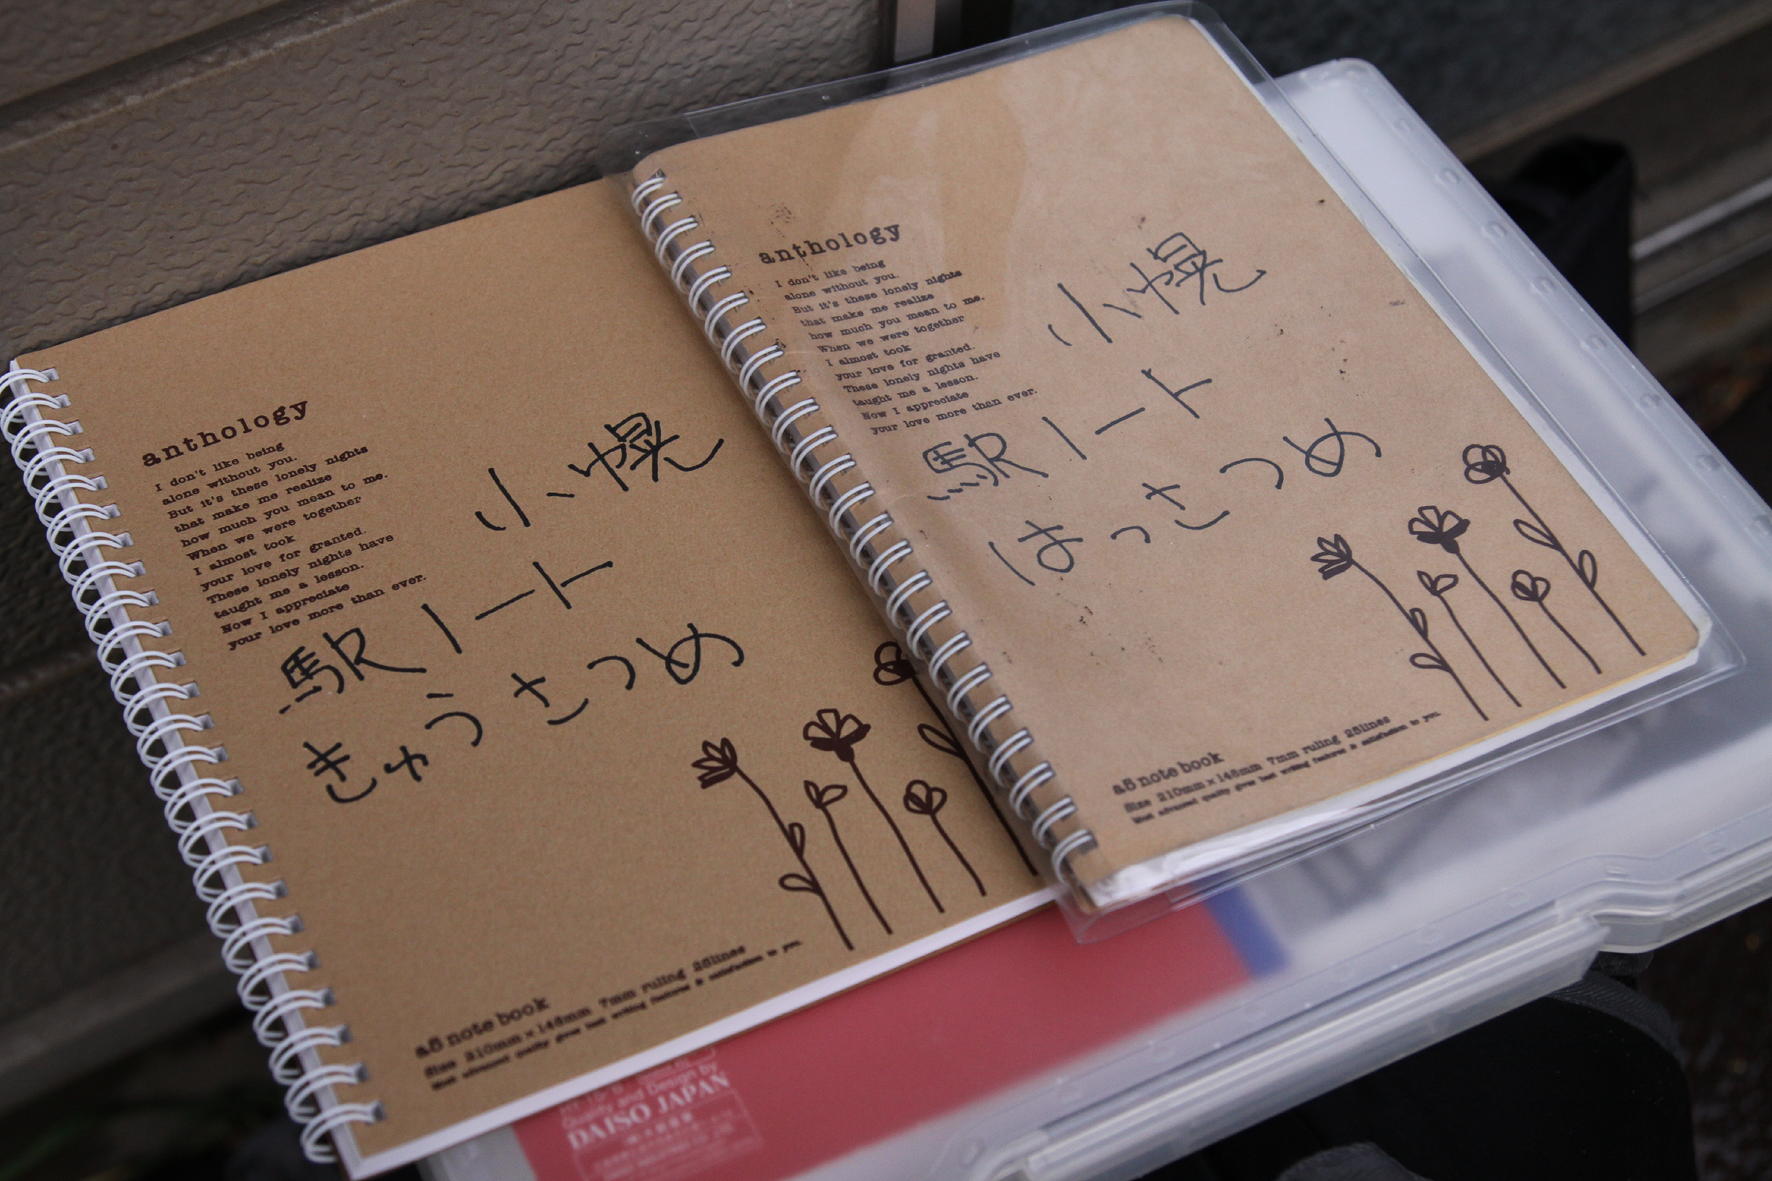 anthology
I don't like being
alone without you.
But it's these lonely nights
that make me realize
how much you mean to me.
When we were together
I almost took
your love for granted.
These lonely nights have
taught me a lesson.
Now I appreciate
your love more than ever.
小幌
駅ノート
きゅうさつめ
a5 note book
Size 210mm×148mm 7mm ruling 25lines
Most advanced quality gives best writing features & satisfaction to you.
anthology
I don't like being
alone without you.
But it's these lonely nights
that make me realize
how much you mean to me.
When we were together
I almost took
your love for granted.
These lonely nights have
taught me a lesson.
Now I appreciate
your love more than ever.
小幌
駅ノート
はっさつめ
a5 note book
Size 210mm×148mm 7mm ruling 25lines
Most advanced quality gives best writing features & satisfaction to you.
Quality and Design by
DAISO JAPAN